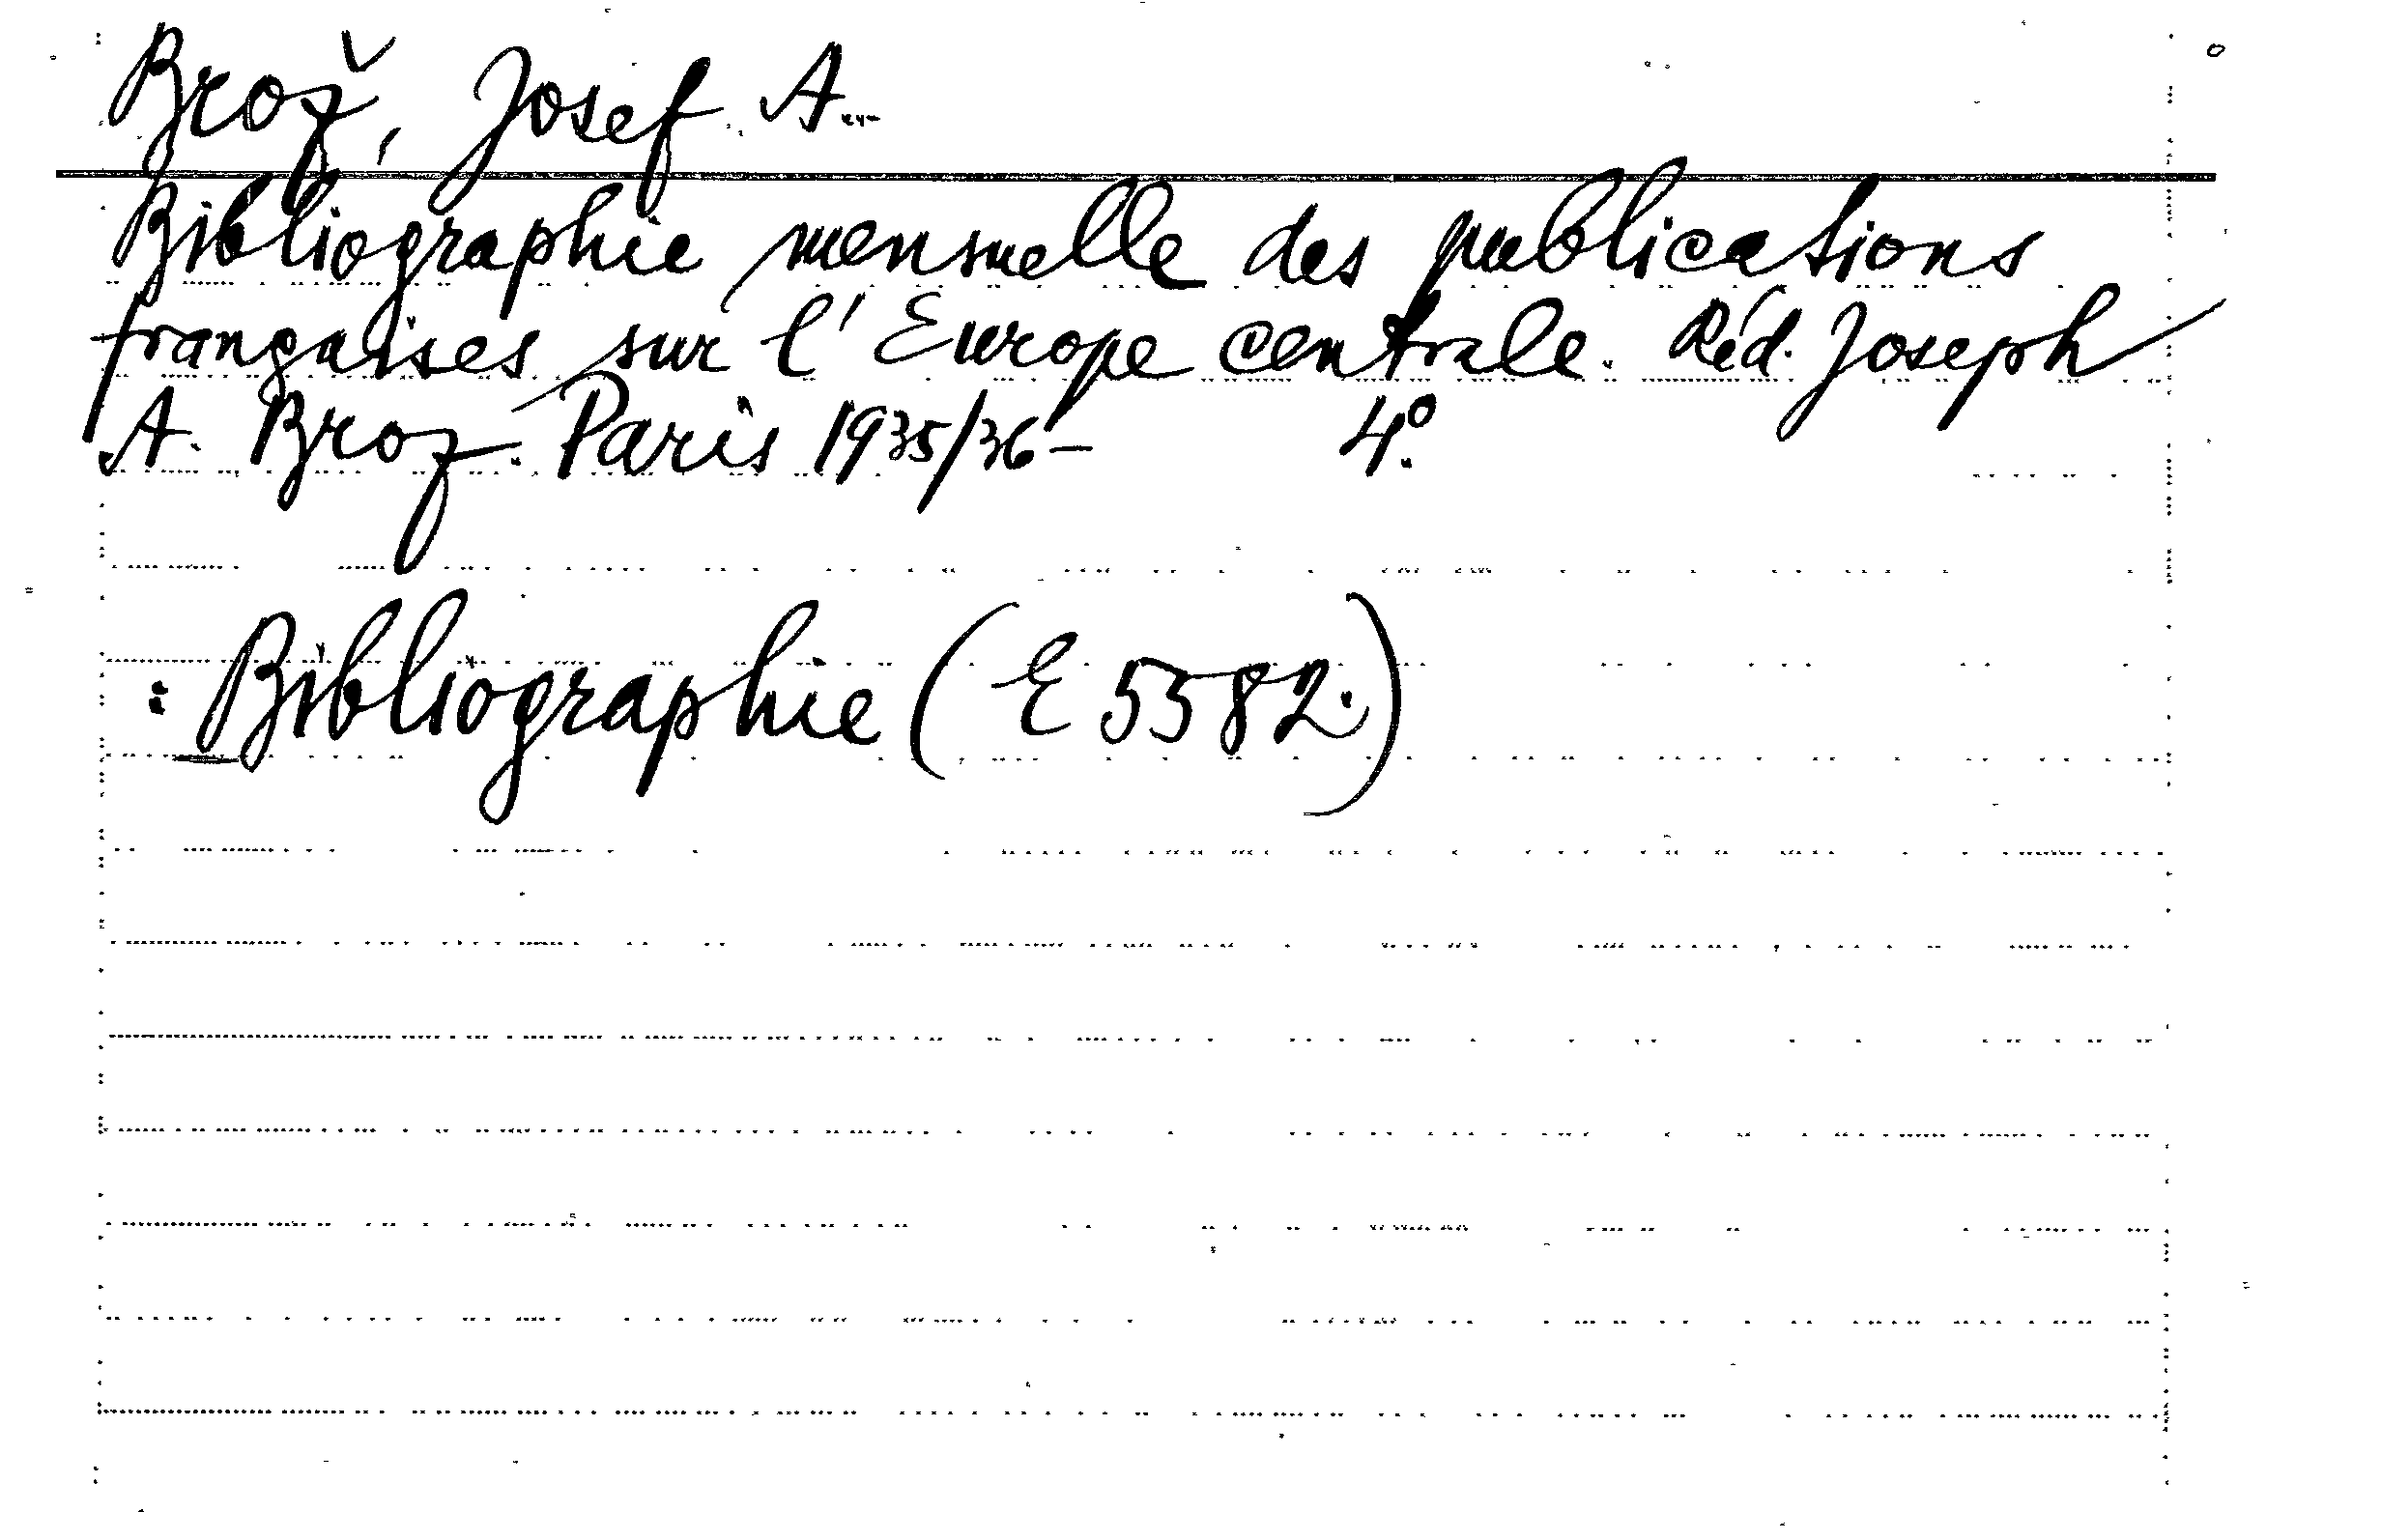 Brož, Josef A.
Bibliographie mensuelle des publications
françaises sur l'Europe centrale. Réd. Joseph
A. Broz. Paris 1935/36- 4°.
: Bibliographie (E 5582.)